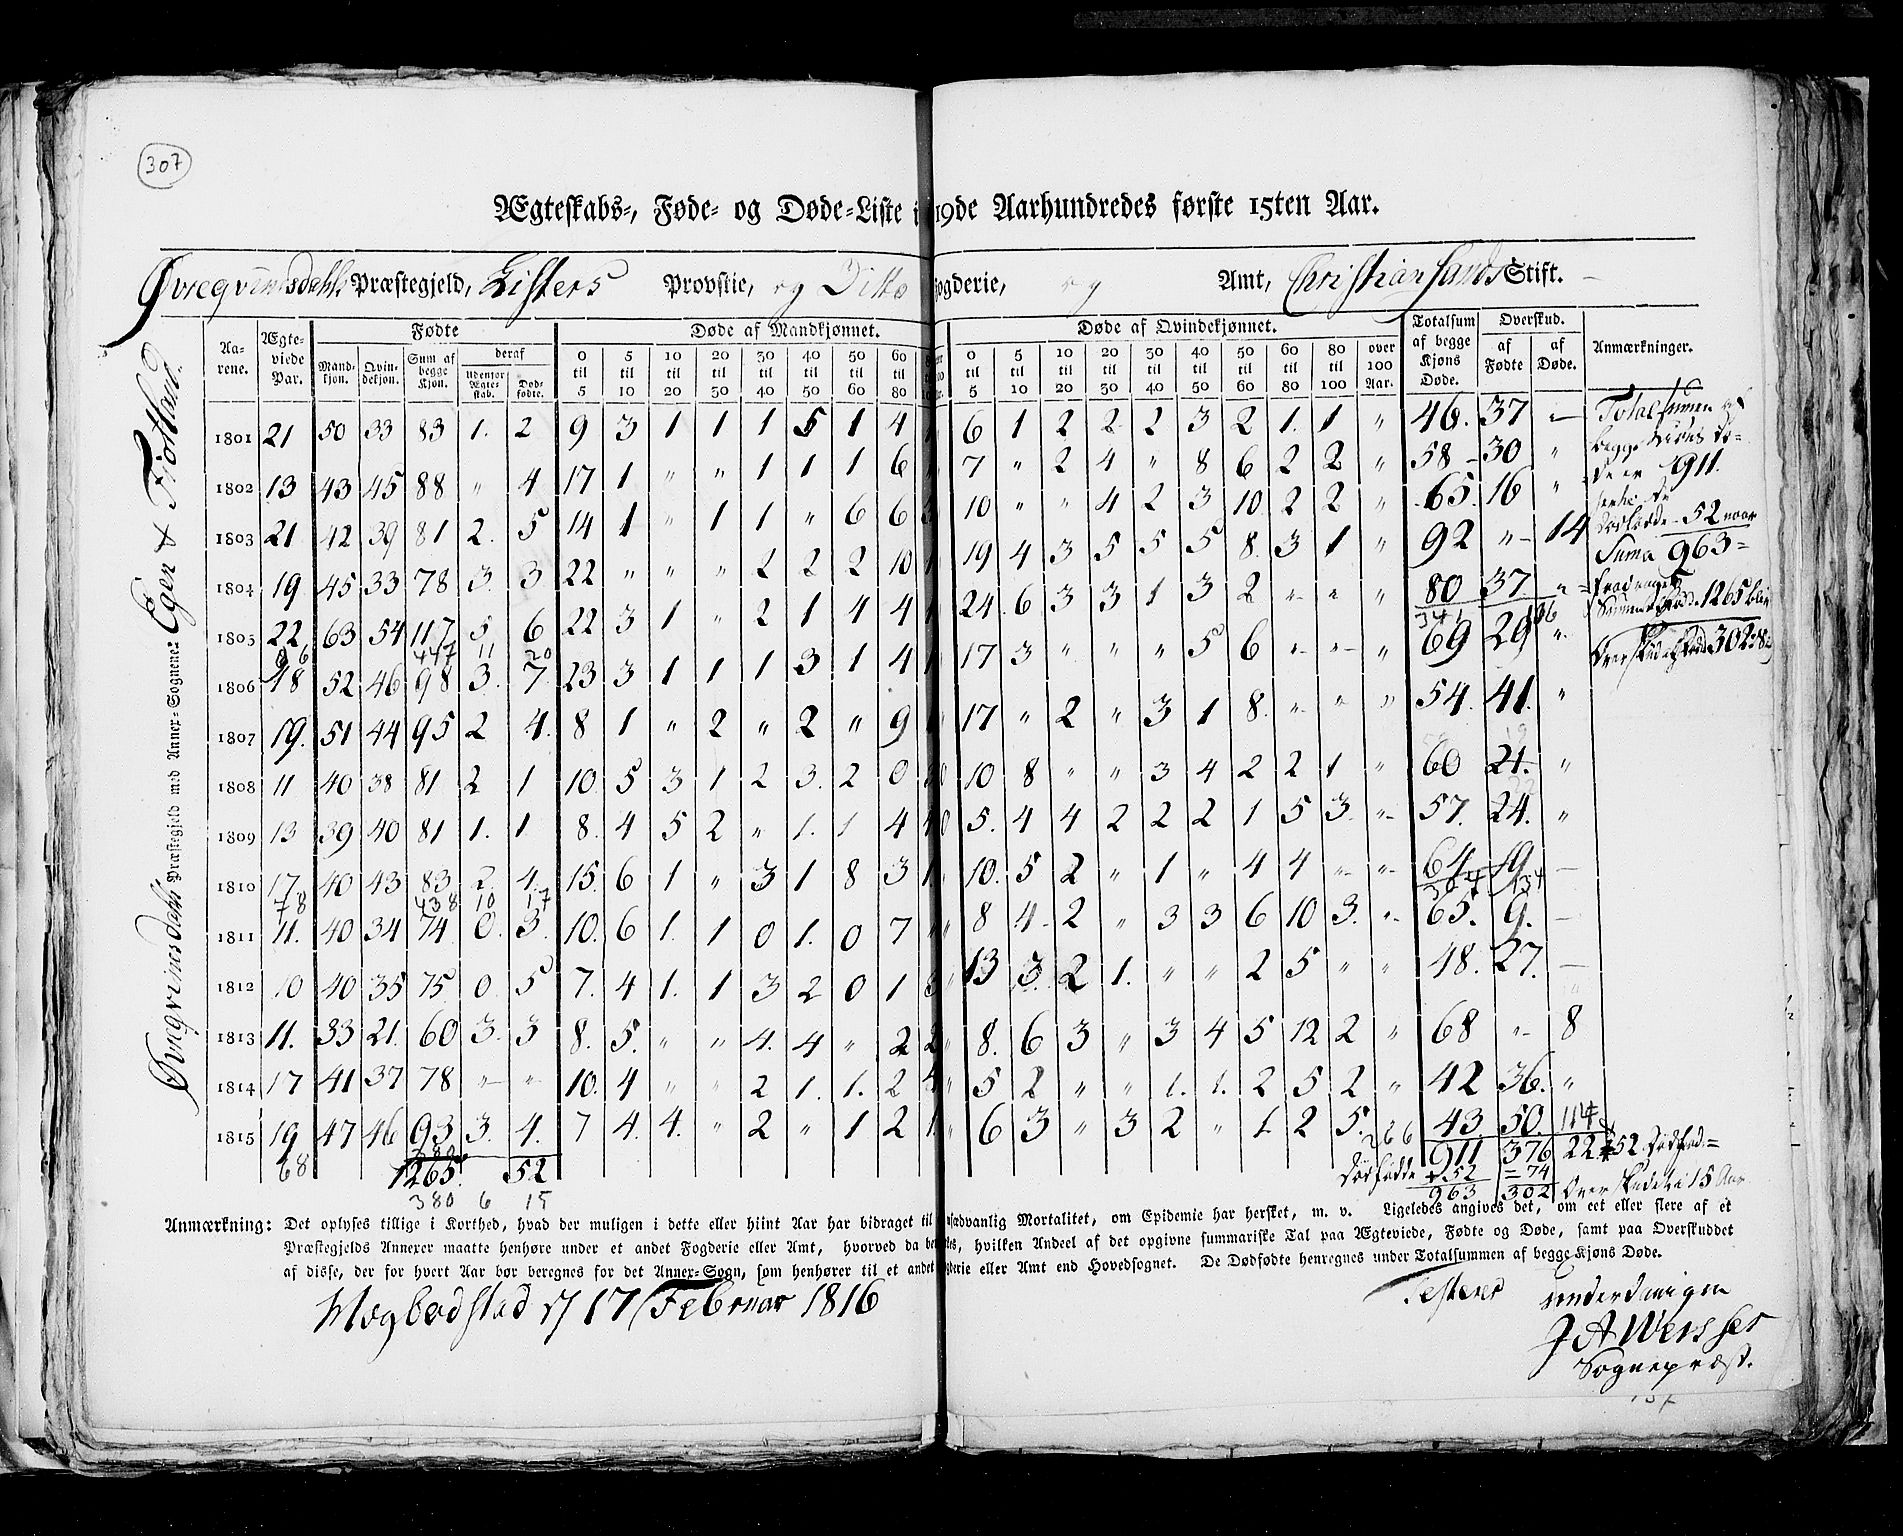 307
Ægteskabs-, Føde- og Døde-Liste i 19de Aarhundredes første 15ten Aar.
Øvreqvinesdahls Præstegjeld, Listers Provstie, og Ditto Fogderie, og Amt, Christiansands Stift.
Øvreqvinesdahls Præstegjeld med Annex-Sognene: Eger & Fjotland
Aarene. Ægteviede Par. Fødte Døde af Mandkjønnet. Døde af Qvindekjønnet. Totalsum af begge Kjøns Døde. Overskud. Anmærkninger.
Mandkjøn. Qvindekjøn. Sum af begge Kjøn. deraf udenfor Ægteskab. Dødfødte. af Fødte af Døde.
0 til 5 5 til 10 10 til 20 20 til 30 30 til 40 40 til 50 50 til 60 60 til 80
0 til 5 5 til 10 10 til 20 20 til 30 30 til 40 40 til 50 50 til 60 60 til 80 80 til 100 over 100 Aar.
1801 21 50 33 83 1. 2 9 3 1 1 1 5 1 4 6 1 2 2 2 3 2 1. 1 „ 46. 37 —
1802 13 43 45 88 „ 4 17 1 „ „ 1 1 1 6 7 „ 2 4 „ 8 6 2 2 „ 58 30 „
1803 21 42 39 81 2. 5 14 1 „ 1 1 „ 6 6 10 „ „ 4 2 3 10 2 2 „ 65. 16 „
1804 19 45 33 78 3. 3 22 „ „ „ 2 2 2 10 19 4 3 5 5 5 8. 3 1 „ 92 „ 14
1805 22 63 54 117 5 6 22 3 1 „ 2 1 4 4 24. 6 3 3 1 3 2 „ „ „ 80 37. „
96 447 11 20 341
1806 18 52 46 98 3. 7 23 3 1 1 1 3 1 4 17 3 „ „ „ 5 6 „ „ „ 69 29 „
1807 19. 51 44 95 2 4. 8 1 „ 2 „ 2 „ 9 17 „ 2 „ 3 1 8. „ „ „ 54. 41. „
1808 11 40 38 81 2 1 10. 5 3 1 2 3. 2 0 10 8 „ „ 3 4 2 2 1 „ 60 21. „
1809 13 39 40 81 1. 1 8. 4 5 2 „ 1. 1 4 5. 4 4 2 2 2 1 5 3. „ 57. 24. „
1810 17 40 43 83 2. 4. 15. 6 1 „ 3 1 8 3 10. 5 2 „ 1 „ 4 4 „ „ 64 19. —
78 438 10 17 304 134
1811 11. 40 34 74 0. 3. 10. 6 1. 1 0 1. 0 7 8 4 2 „ 3 3 6 10 3. „ 65. 9. —
1812 10 40 35 75. 0. 5 7. 4 1. 1 3 2 0 1 13 3 2 1. „ „ 2 5 „ „ 48. 27. —
1813 11. 33 21. 60 3. 3 8. 5. „ „ 4. 4 „ 2 8. 6 3 „ 3 4 5 12 2 „ 68 „ 8
1814 17 41 37 78 „ „ 10. 4 „ „ 2 1. 1. 2 5 2 „ „ 1. 1. 2 5 2 „ 42 36. „
1815 19 47 46 93 3. 4. 7 4. 4. „ 2 „ 1 2 6 3 „ 3 2 „ 1. 2 5. 43 50.
68 1265 52 266 911 376 22 114
380 6 15
Totalsumen af
begge Kiøns Dø=
de er 911.
Dødfødde 52
Suma 963
fradraget
Summen Fødde 1265 blir
Overskudet Fødde 302
52 Dødfød=
Dødfødde +52 = 74
963 302 Overskudet i 15 Aar
Anmærkning: Det oplyses tillige i Korthed, hvad der muligen i dette eller hiint Aar har bidraget til usædvanlig Mortalitet, om Epidemie har hersket, m. v. Ligeledes angives det, om eet eller flere af et
Præstegjelds Annexer maatte henhøre under et andet Fogderie eller Amt, hvorved da bemærkes, hvilken Andeel af det opgivne summariske Tal paa Ægteviede, Fødte og Døde, samt paa Overskuddet
af disse, der for hvert Aar bør beregnes for det Annex-Sogn, som henhører til et andet Fogderie eller Amt end Hovedsognet. De Dødfødte henregnes under Totalsummen af begge Kjøns Døde.
17 Februar 1816
Testerer underdanigen
J A Weisser
Sognepræst.